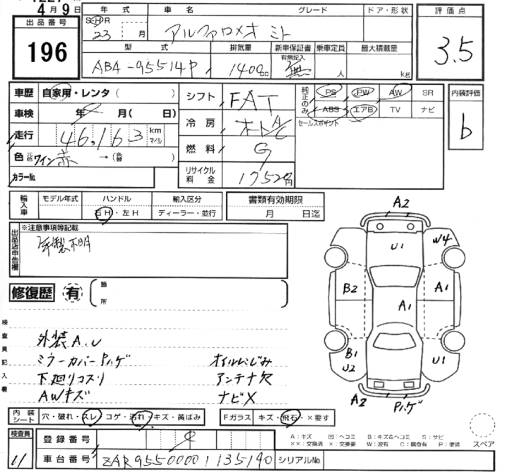 4月9日
出品番号
196
年式
SH R
23 月
車名
アルファロメオ ミト
グレード
ドア・形状
評価点
3.5
型式
ABA-95514P
排気量
1400
新車保証書
有無記入
無
乗車定員
人
最大積載量
kg
車歴 自家用・レンタ( )
車検 年( )月( 日)
走行 46,163 km マイル
色 元色 ワイン赤 →(替 色)
カラーNo.
シフト FAT
冷房 オートA/C
燃料 G
リサイクル料金 17520円
純正のみ
PS PW AW SR
ABS エアB TV ナビ
セールスポイント
内装評価
b
輸入車
モデル年式
ハンドル
右H・左H
輸入区分
ディーラー・並行
書類有効期限
月 日迄
出品店申告欄
※注意事項等記載
年製不明
修復歴 有
箇所
検査員記入欄
外装A.U
ミラーカバーハゲ
下廻りコスリ
AWキズ
オイルにじみ
アンテナ欠
ナビX
A2
U1
W4
B2
A1
A1
B1
U2
U1
A2
ハゲ
内装シート
穴・破れ・スレ・コゲ・汚れ・キズ・黄ばみ
Fガラス
キズ・飛石・X要す
検査員
登録番号
車台番号
ZAR95500001135190
シリアルNo.
A:キズ U:ヘコミ B:キズ&ヘコミ S:サビ
スペア